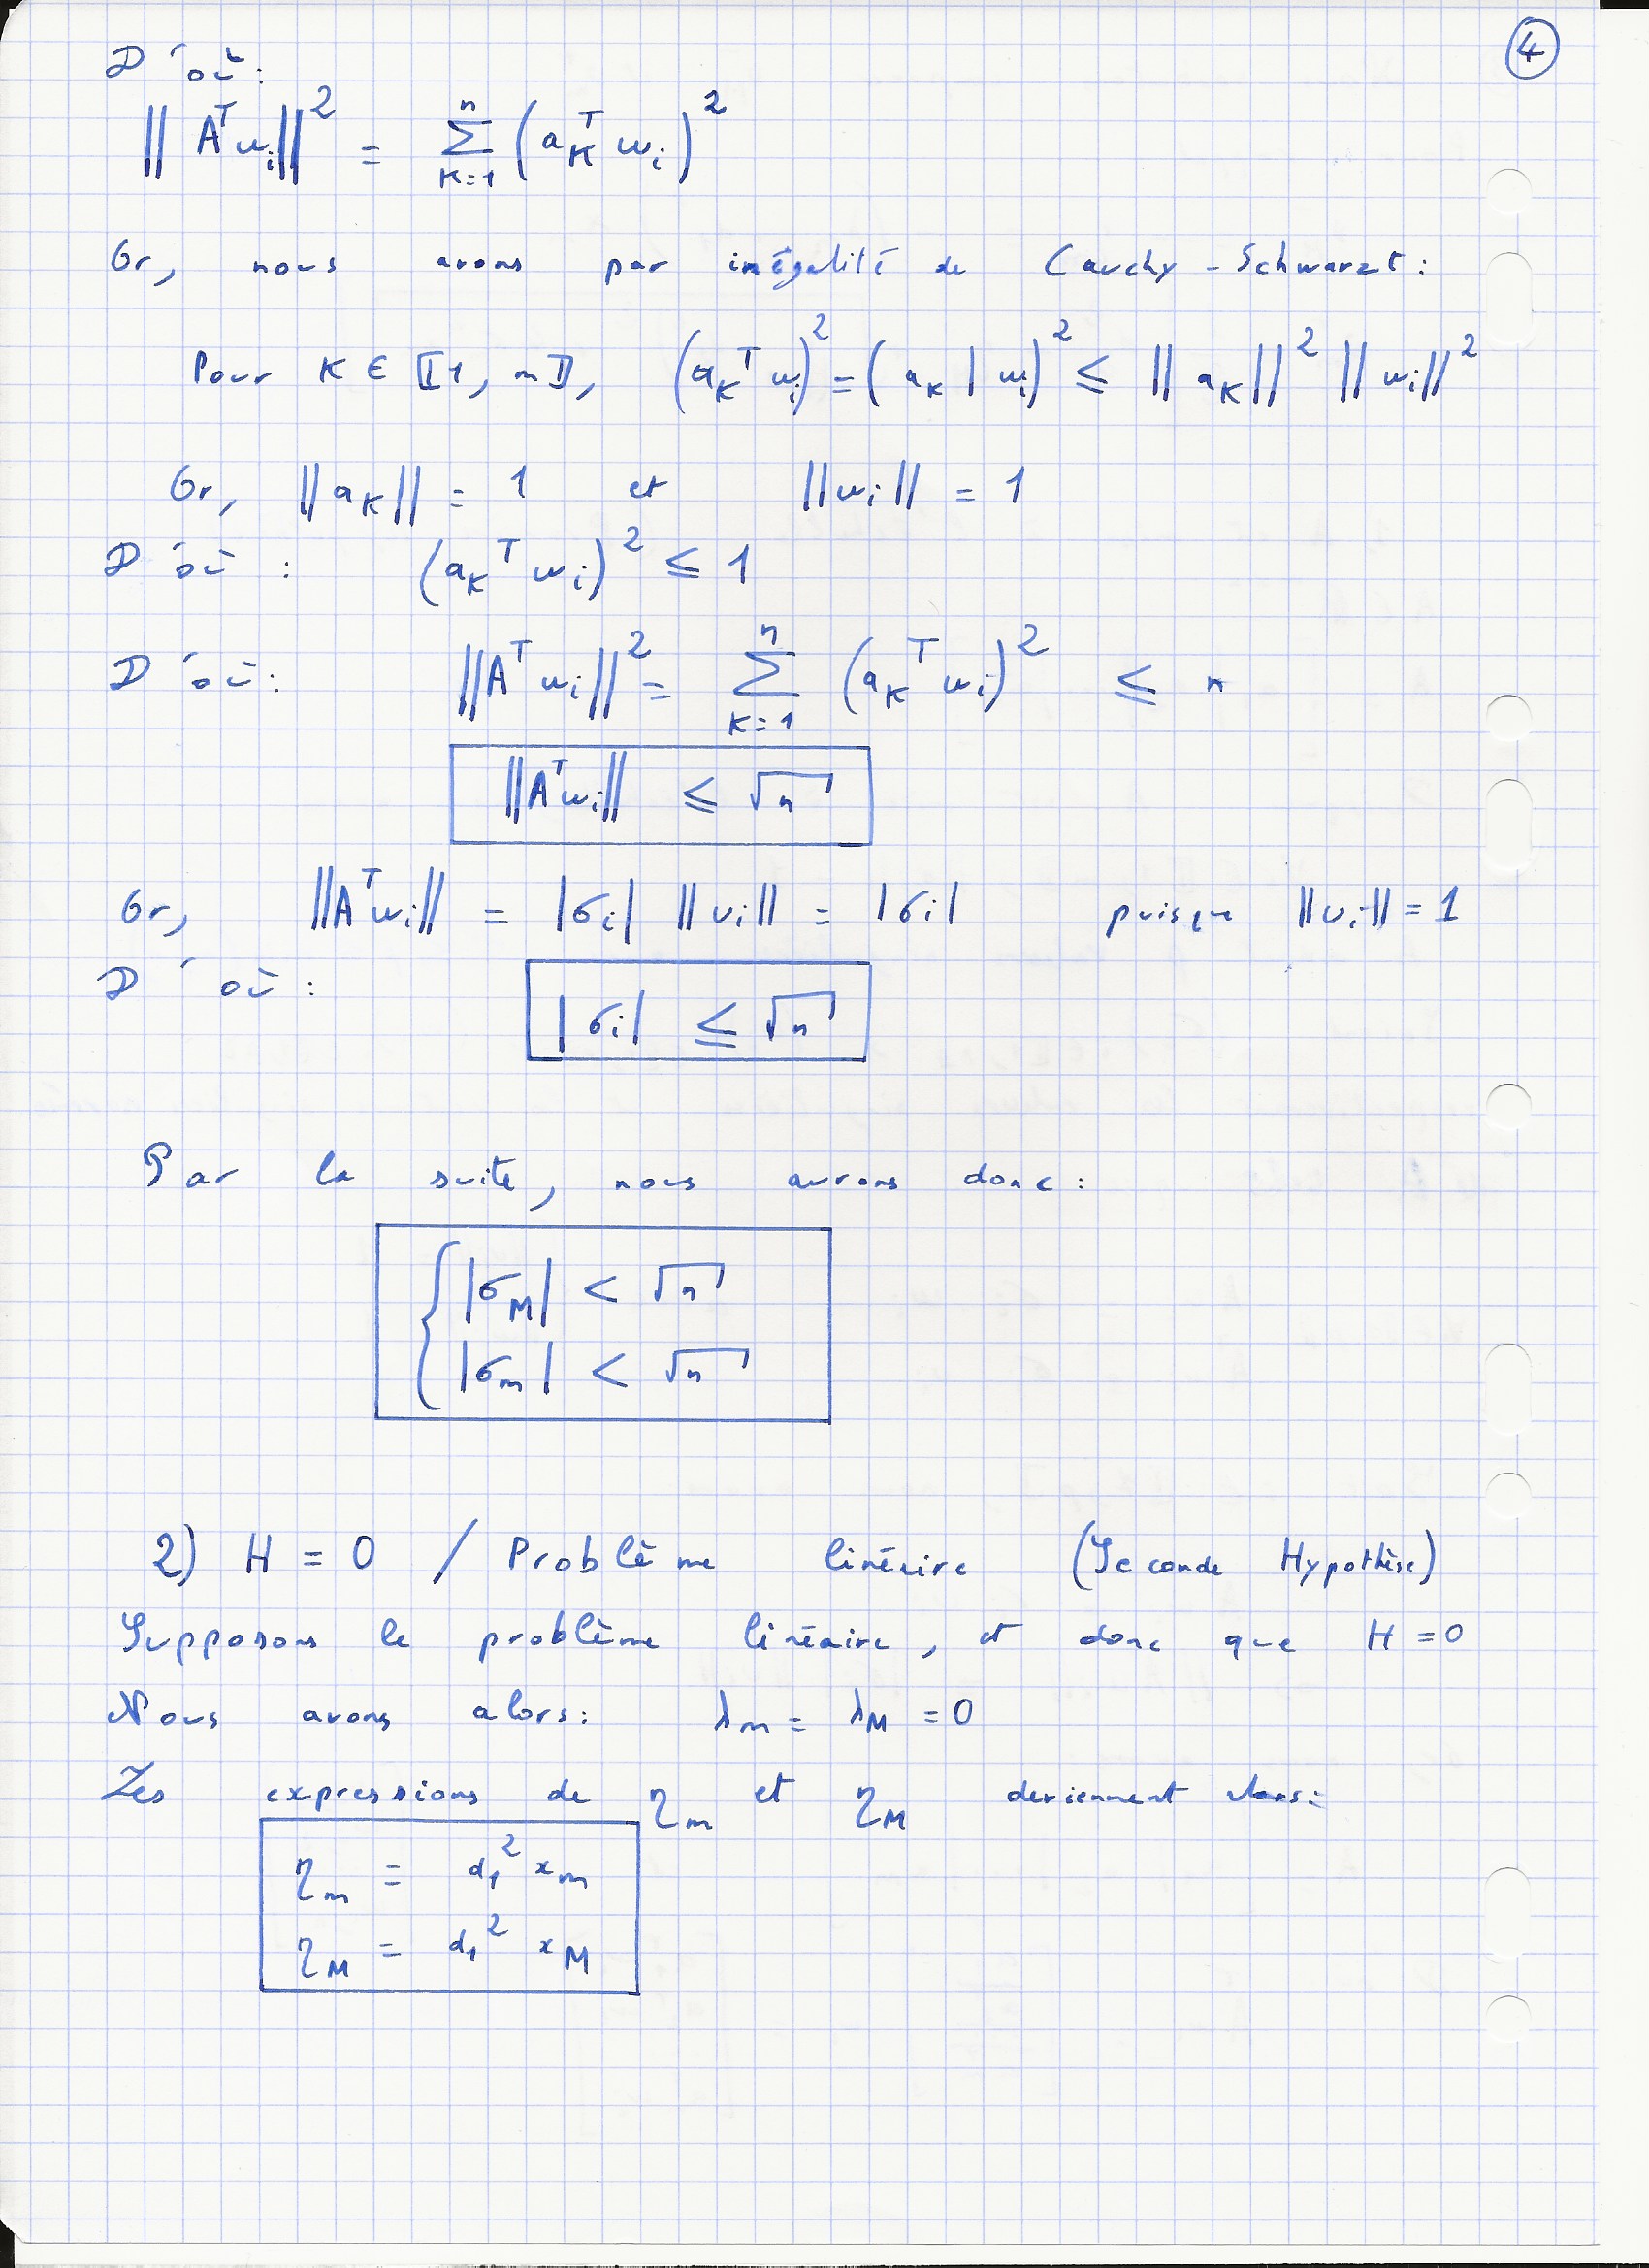 ④
D'où :
‖A^T u_i‖² = Σ_{K=1}^{n} (a_K^T u_i)²
Or, nous avons par inégalité de Cauchy-Schwarzt :
Pour K ∈ ⟦1, n⟧, (a_K^T u_i)² = (a_K | u_i)² ≤ ‖a_K‖² ‖u_i‖²
Or, ‖a_K‖ = 1 et ‖u_i‖ = 1
D'où : (a_K^T u_i)² ≤ 1
D'où : ‖A^T u_i‖² = Σ_{K=1}^{n} (a_K^T u_i)² ≤ n
‖A^T u_i‖ ≤ √n
Or, ‖A^T u_i‖ = |σ_i| ‖v_i‖ = |σ_i| puisque ‖v_i‖ = 1
D'où : |σ_i| ≤ √n
Par la suite, nous aurons donc :
{ |σ_M| < √n
|σ_m| < √n
2) H = 0 / Problème linéaire (Seconde Hypothèse)
Supposons le problème linéaire, et donc que H = 0
Nous avons alors : λ_m = λ_M = 0
Les expressions de η_m et η_M deviennent alors :
η_m = d_1² x_m
η_M = d_1² x_M